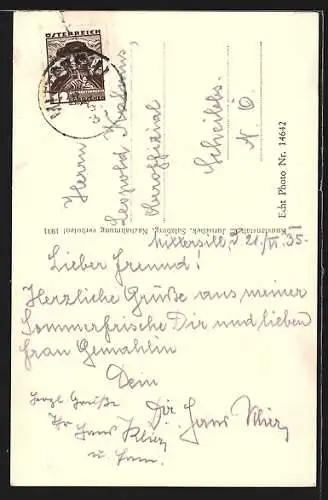 ÖSTERREICH
Herrn
Leopold
Oberoffizial
Scheibbs
N. Ö.
Echt Photo Nr. 14642
Kunstverlag C. Jurischek, Salzburg, Nachahmung verboten! 1931
Mittersill, 21./VI. 35.
Lieber Freund!
Herzliche Grüße aus meiner
Sommerfrische Dir und lieben
Frau Gemahlin
Dein
Dir. Hans
herzl. Grüße
Ihr Hans
u. Fam.